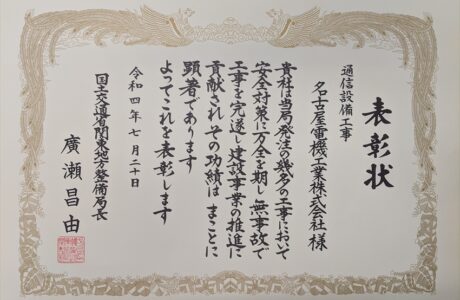 表彰状
通信設備工事
名古屋電機工業株式会社様
貴社は当局発注の幾多の工事において
安全対策に万全を期し無事故で
工事を完遂し建設事業の推進に
貢献されその功績はまことに
顕著であります
よってこれを表彰します
令和四年七月二十日
国土交通省関東地方整備局長
廣瀬昌由